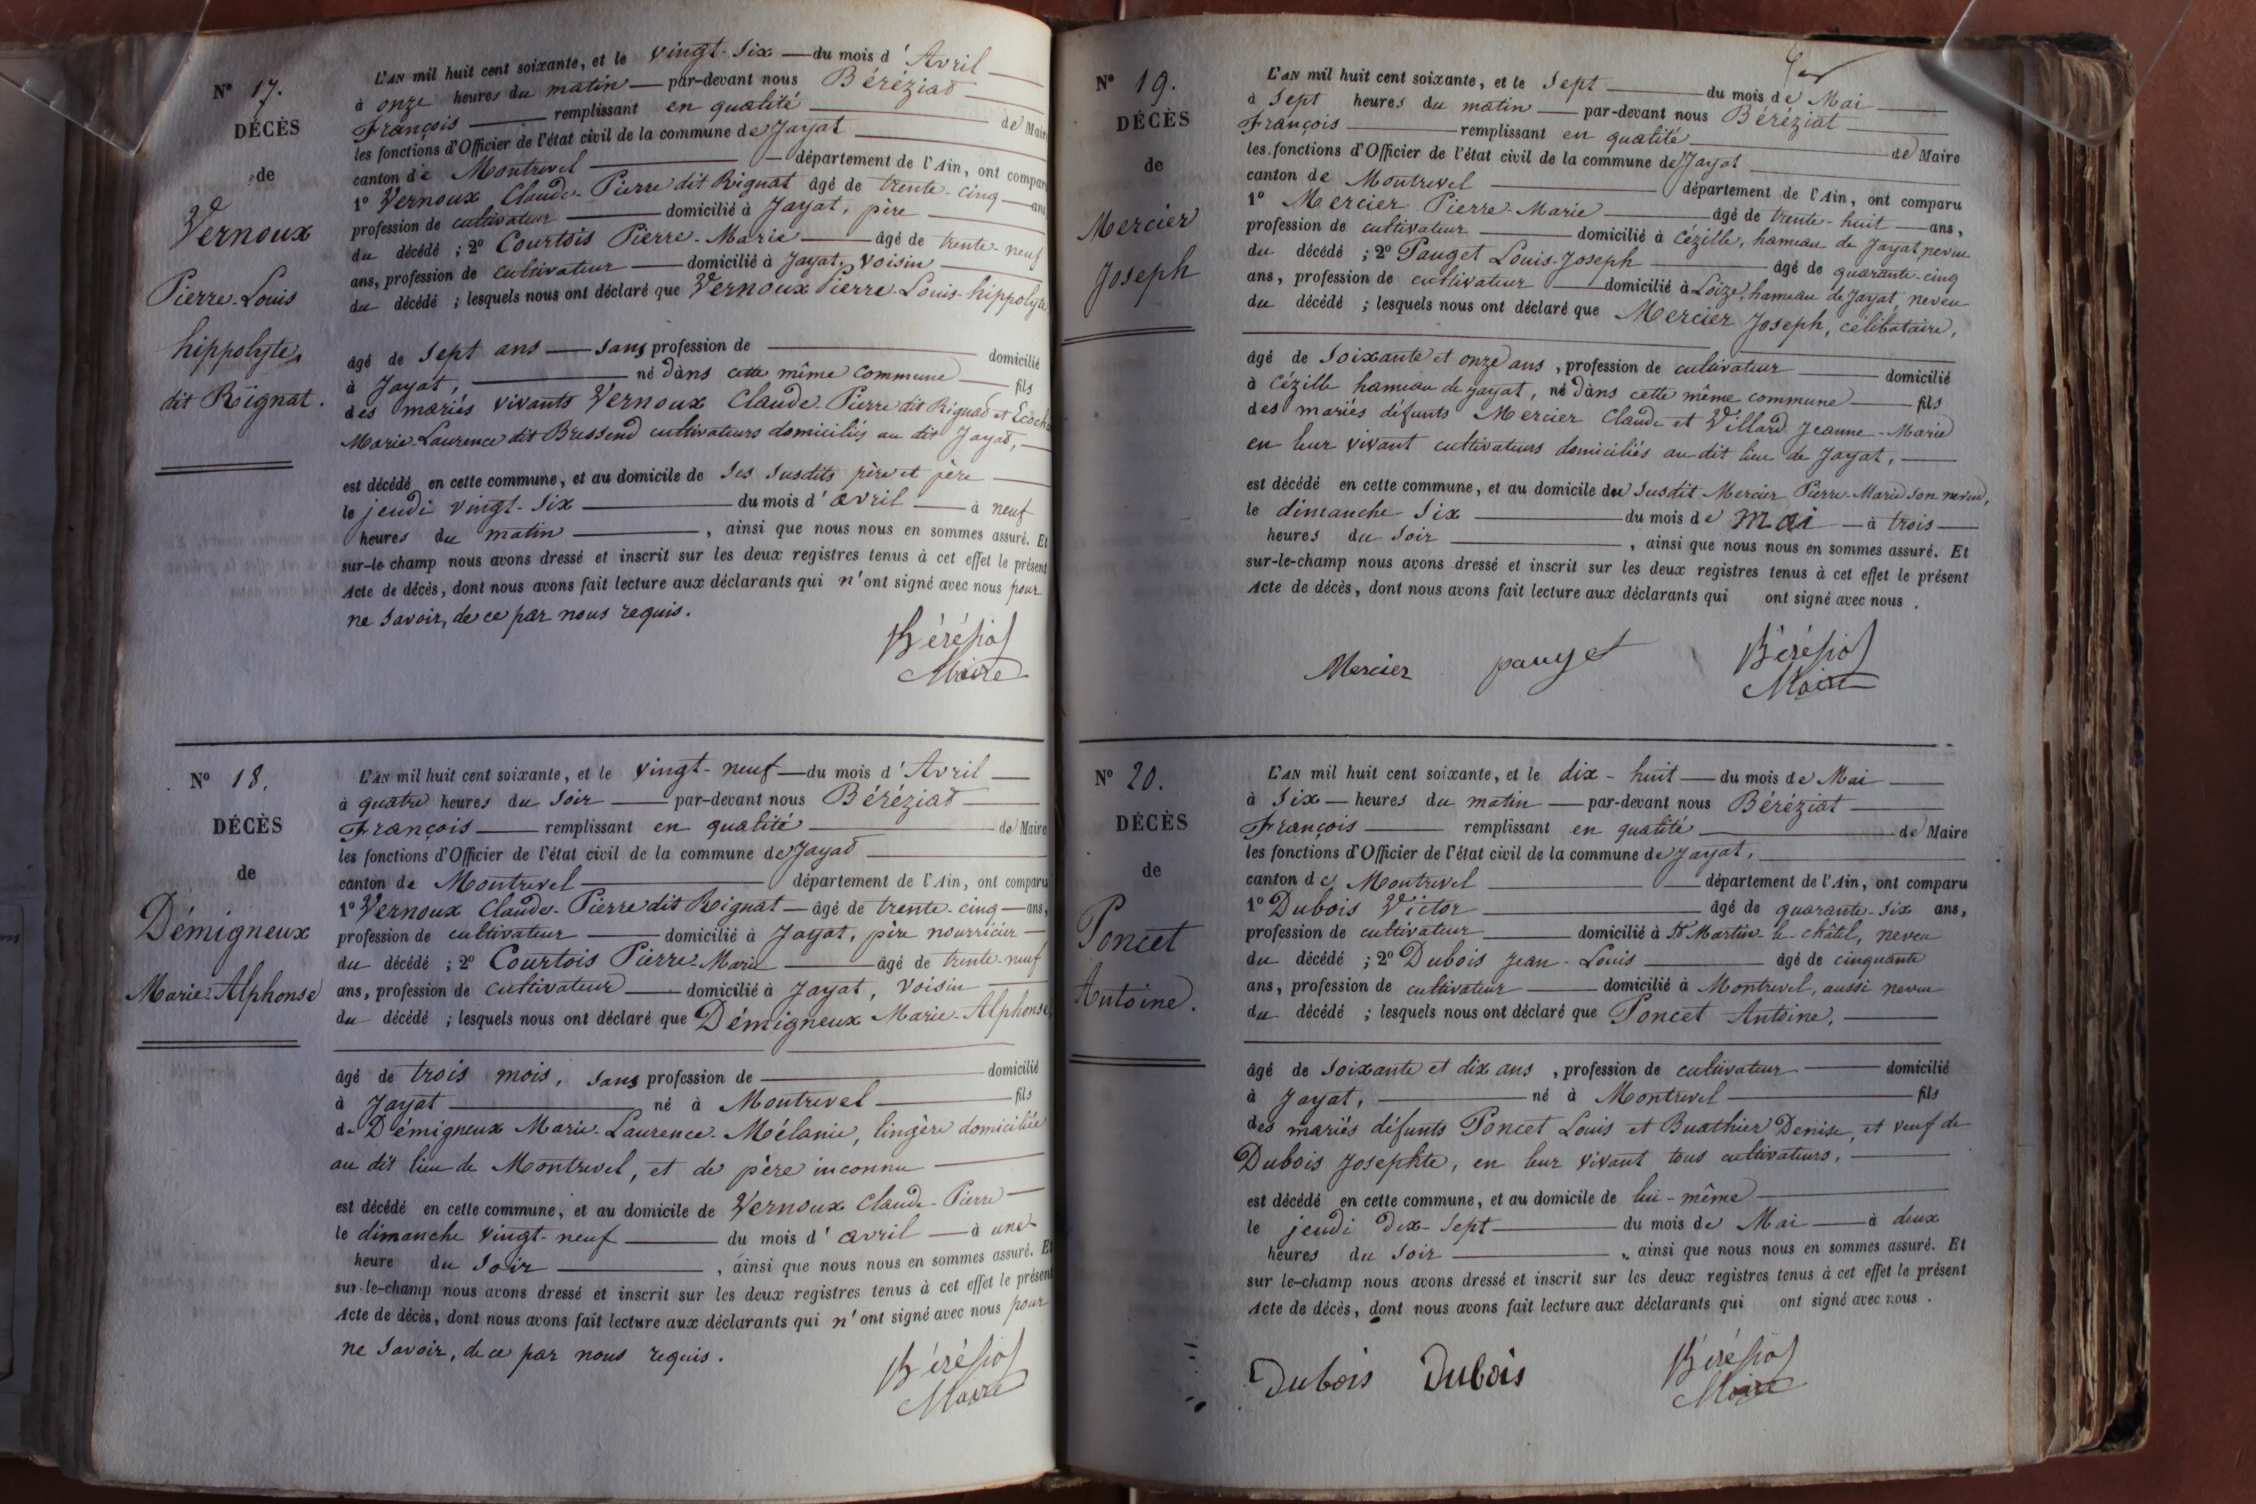 N° 17.
DÉCÈS
de
Vernoux
Pierre-Louis
hippolyte,
dit Rignat.
L'AN mil huit cent soixante, et le vingt-six du mois d'Avril
à onze heures du matin par-devant nous Béréziat
François remplissant en qualité de Maire
les fonctions d'Officier de l'état civil de la commune de Jayat
canton de Montrevel département de l'Ain, ont comparu
1° Vernoux Claude-Pierre dit Rignat âgé de trente-cinq ans
profession de cultivateur domicilié à Jayat, père
du décédé ; 2° Courtois Pierre-Marie âgé de trente-neuf
ans, profession de cultivateur domicilié à Jayat, voisin
du décédé ; lesquels nous ont déclaré que Vernoux Pierre-Louis-hippolyte
âgé de sept ans sans profession de domicilié
à Jayat, né dans cette même commune fils
des mariés vivants Vernoux Claude-Pierre dit Rignat et Ecochard
Marie-Laurence dit Bressend cultivateurs domiciliés au dit Jayat,
est décédé en cette commune, et au domicile de ses susdits père et père
le jeudi vingt-six du mois d'avril à neuf
heures du matin, ainsi que nous nous en sommes assuré. Et
sur-le-champ nous avons dressé et inscrit sur les deux registres tenus à cet effet le présent
Acte de décès, dont nous avons fait lecture aux déclarants qui n'ont signé avec nous pour
ne savoir, de ce par nous requis.
Béréziat
Maire
N° 18.
DÉCÈS
de
Démigneux
Marie-Alphonse
L'AN mil huit cent soixante, et le vingt-neuf du mois d'Avril
à quatre heures du soir par-devant nous Béréziat
François remplissant en qualité de Maire
les fonctions d'Officier de l'état civil de la commune de Jayat
canton de Montrevel département de l'Ain, ont comparu
1° Vernoux Claude-Pierre dit Rignat âgé de trente-cinq ans,
profession de cultivateur domicilié à Jayat, père nourricier
du décédé ; 2° Courtois Pierre-Marie âgé de trente-neuf
ans, profession de cultivateur domicilié à Jayat, voisin
du décédé ; lesquels nous ont déclaré que Démigneux Marie-Alphonse,
âgé de trois mois, sans profession de domicilié
à Jayat né à Montrevel fils
de Démigneux Marie-Laurence-Mélanie, lingère domiciliée
au dit lieu de Montrevel, et de père inconnu
est décédé en cette commune, et au domicile de Vernoux Claude-Pierre
le dimanche vingt-neuf du mois d'avril à une
heure du soir, ainsi que nous nous en sommes assuré. Et
sur-le-champ nous avons dressé et inscrit sur les deux registres tenus à cet effet le présent
Acte de décès, dont nous avons fait lecture aux déclarants qui n'ont signé avec nous pour
ne savoir, de ce par nous requis.
Béréziat
Maire
N° 19.
DÉCÈS
de
Mercier
Joseph
L'AN mil huit cent soixante, et le sept du mois de Mai
à sept heures du matin par-devant nous Béréziat
François remplissant en qualité de Maire
les fonctions d'Officier de l'état civil de la commune de Jayat
canton de Montrevel département de l'Ain, ont comparu
1° Mercier Pierre-Marie âgé de trente-huit ans,
profession de cultivateur domicilié à Cézille, hameau de Jayat neveu
du décédé ; 2° Pauget Louis-Joseph âgé de quarante-cinq
ans, profession de cultivateur domicilié à Loize, hameau de Jayat, neveu
du décédé ; lesquels nous ont déclaré que Mercier Joseph, célibataire,
âgé de soixante et onze ans, profession de cultivateur domicilié
à Cézille hameau de Jayat, né dans cette même commune fils
des mariés défunts Mercier Claude et Villard Jeanne-Marie
en leur vivant cultivateurs domiciliés au dit lieu de Jayat,
est décédé en cette commune, et au domicile du susdit Mercier Pierre-Marie son neveu,
le dimanche six du mois de mai à trois
heures du soir, ainsi que nous nous en sommes assuré. Et
sur-le-champ nous avons dressé et inscrit sur les deux registres tenus à cet effet le présent
Acte de décès, dont nous avons fait lecture aux déclarants qui ont signé avec nous.
Mercier pauget Béréziat
Maire
N° 20.
DÉCÈS
de
Poncet
Antoine.
L'AN mil huit cent soixante, et le dix-huit du mois de Mai
à six heures du matin par-devant nous Béréziat
François remplissant en qualité de Maire
les fonctions d'Officier de l'état civil de la commune de Jayat,
canton de Montrevel département de l'Ain, ont comparu
1° Dubois Victor âgé de quarante-six ans,
profession de cultivateur domicilié à St Martin-le-châtel, neveu
du décédé ; 2° Dubois Jean-Louis âgé de cinquante
ans, profession de cultivateur domicilié à Montrevel, aussi neveu
du décédé ; lesquels nous ont déclaré que Poncet Antoine,
âgé de soixante et dix ans, profession de cultivateur domicilié
à Jayat, né à Montrevel fils
des mariés défunts Poncet Louis et Buathier Denise, et veuf de
Dubois Josephte, en leur vivant tous cultivateurs,
est décédé en cette commune, et au domicile de lui-même
le jeudi dix-sept du mois de Mai à deux
heures du soir, ainsi que nous nous en sommes assuré. Et
sur le-champ nous avons dressé et inscrit sur les deux registres tenus à cet effet le présent
Acte de décès, dont nous avons fait lecture aux déclarants qui ont signé avec nous.
Dubois Dubois Béréziat
Maire